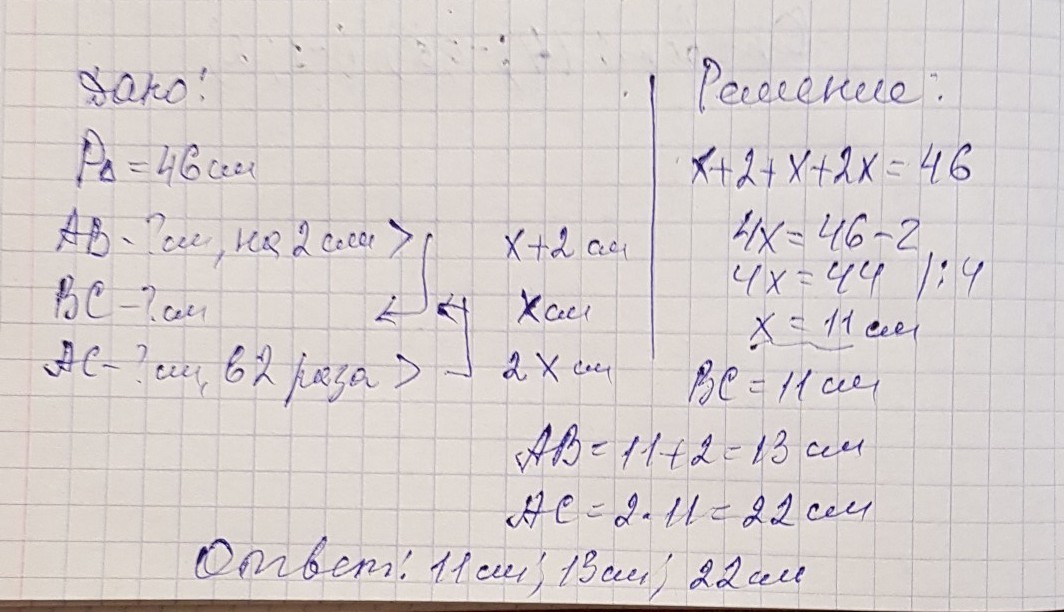 Дано:
P△ = 46 см
AB - ? см, на 2 см > x+2 см
BC - ? см x см
AC - ? см, в 2 раза > 2x см
Решение:
x+2+x+2x = 46
4x = 46-2
4x = 44 /:4
x = 11 см
BC = 11 см
AB = 11+2 = 13 см
AC = 2·11 = 22 см
Ответ: 11 см; 13 см; 22 см